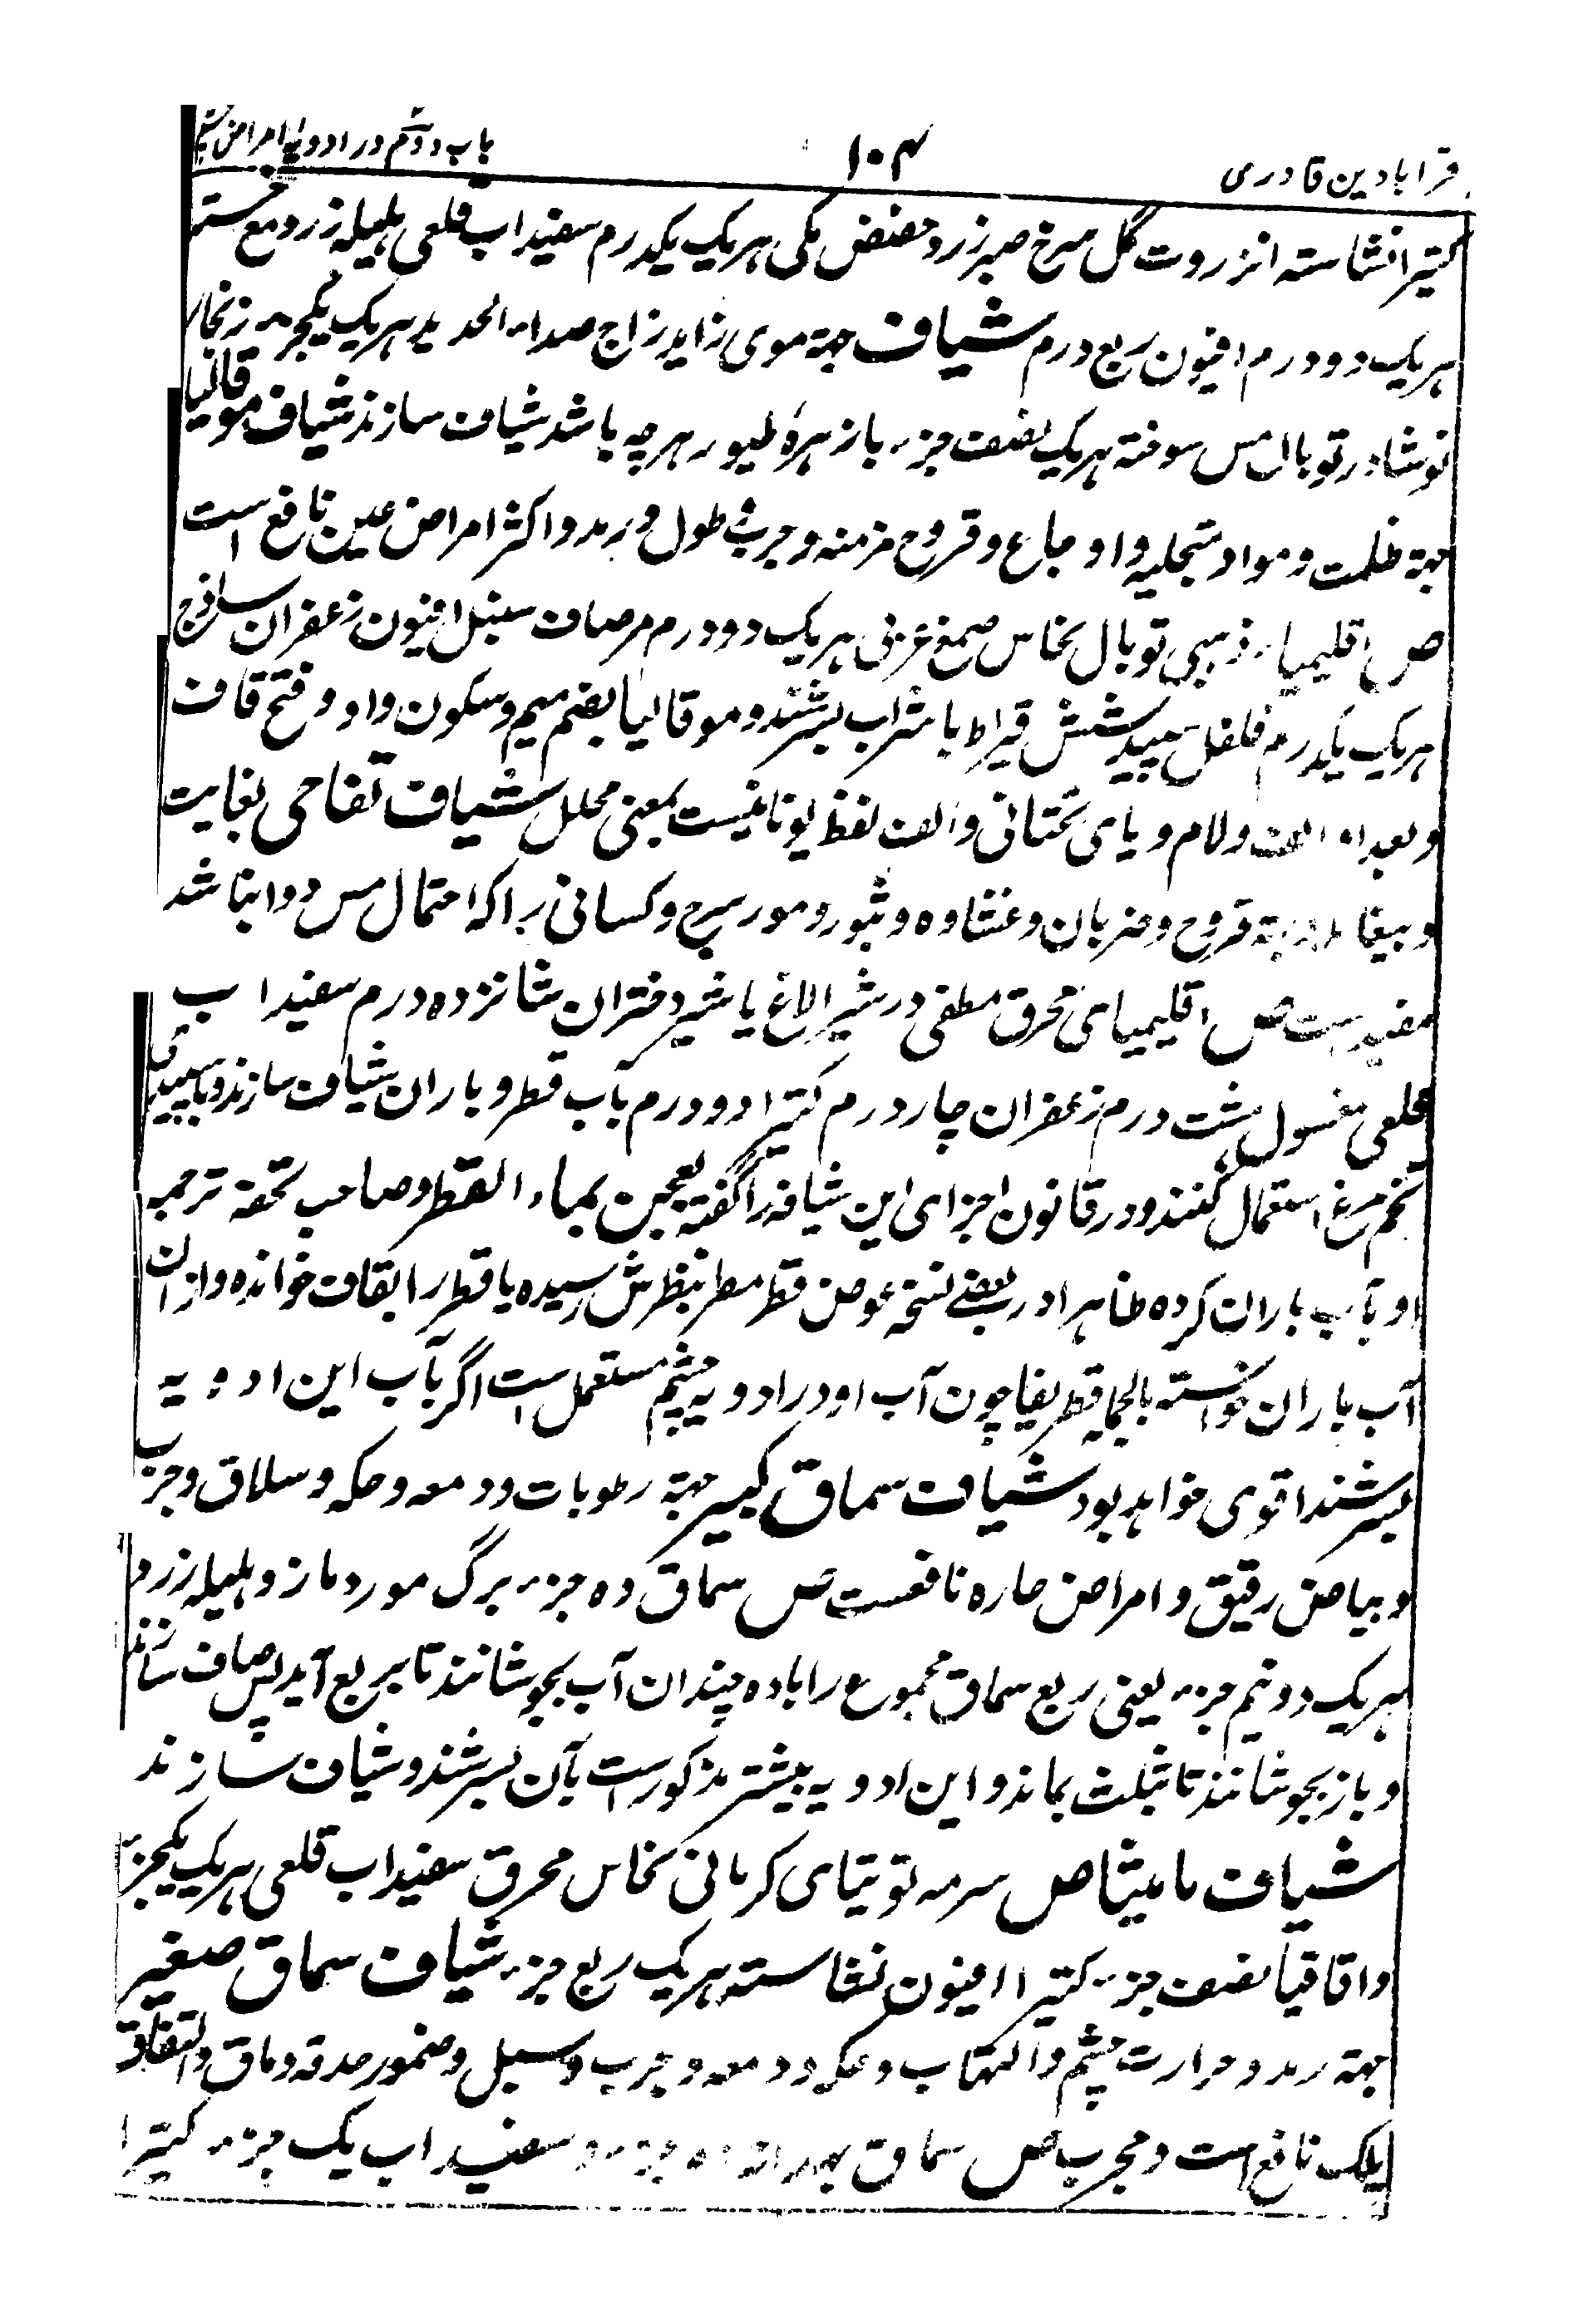 قرابادین قادری ۱۰۴ باب دوم در ادویه امراض چشم
کتیرا نشاسته انزروت گل سرخ صبر زرد حضض مکی هریک یکدرم سفیداب قلعی هلیله زرد مع خسته
هریک دو درم افیون ربع درم شیاف جهة موی زاید زاج صداء الحدید هریک یکجزء زنجار
نوشادر توبال مس سوخته هریک نصف جزء با زهرهٔ طیور هرچه باشد شیاف سازند شیاف موقالیا
جهة ظلمت و مواد متجلبه و اوجاع و قروح مزمنه و جرب طول و رمد و اکثر امراض عین نافع است
ص اقلیمیاء ذهبی توبال نحاس صمغ عربی هریک دو درم مر صاف سنبل افیون زعفران ساذج
هریک یکدرم فلفل سپید شش قیراط با شراب بسرشند و موقالیا بضم میم و سکون واو و فتح قاف
و بعده الف و لام و یای تحتانی و الف لفظ یونانیست بمعنی محلل شیاف تفاحی بغایت
قروح و ضربان و غشاوه و بثور و مورسرج و کسانی را که احتمال مس دوا نباشد
مفیدست ص اقلیمیای محرق مطفی در شیر الاغ یا شیر دختران شانزده درم سفیداب
قلعی مغسول هشت درم زعفران چار درم کتیرا دو درم بآب قطر و باران شیاف سازند و با سپیدی
تخم مرغ استعمال کنند و در قانون اجزای این شیافه را گفته یعجین بماء القطر و صاحب تحفه ترجمه
او بآب باران کرده ظاهرا در بعضے نسخه عوض قطر مطر بنظرش رسیده یا قطر را بقاف خوانده و ازان
آب باران خواسته بالجمله قطر بفا چون آب او در ادویه چشم مستعمل است اگر بآب این ادویه
بسرشند اقوی خواهد بود شیاف سماق کبیر جهة رطوبات و دمعه و حکه و سلاق و جرب
و بیاض رقیق و امراض حاره نافعست ص سماق ده جزء برگ مورد مازو هلیله زرد
هریک دو نیم جزء یعنی ربع سماق مجموع را با ده چندان آب بجوشانند تا بربع آید پس صاف سازند
و باز بجوشانند تا بثلث بماند و این ادویه بیشتر مذکورست بآن بسرشند و شیاف سازند
شیاف مامیثا ص سرمه توتیای کرمانی نحاس محرق سفیداب قلعی هریک یکجزء
و اقاقیا نصف جزء کتیرا افیون نشاسته هریک ربع جزء شیاف سماق صغیر
جهة رمد و حرارت چشم و التهاب و حکه و دمعه و جرب و سبل و ضمور حدقه و ماق و التصاق
پلک نافع است و مجرب ص سماق ده جزء و سفیداب یک جزء کتیرا